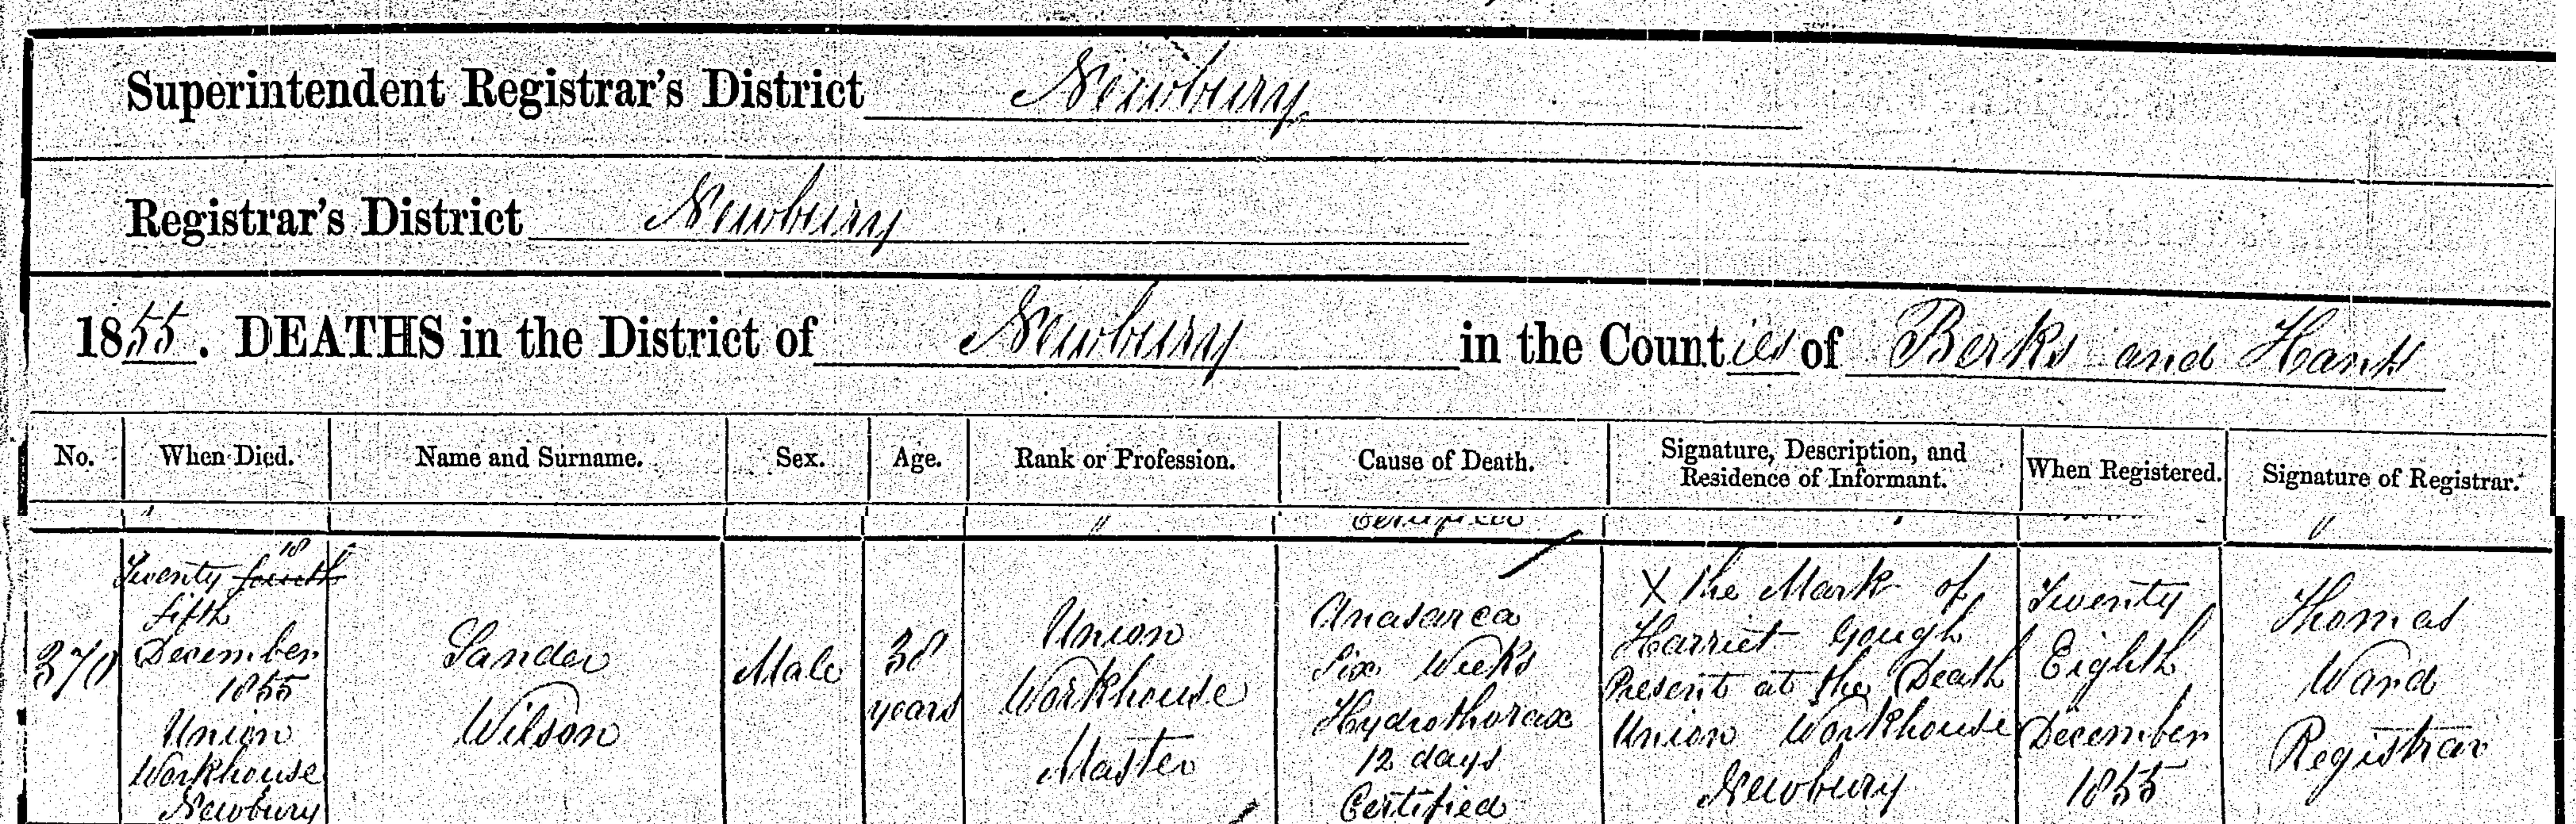 Superintendent Registrar's District Newbury
Registrar's District Newbury
1855. DEATHS in the District of Newbury in the Counties of Berks and Hants
No.
When Died.
Name and Surname.
Sex.
Age.
Rank or Profession.
Cause of Death.
Signature, Description, and
Residence of Informant.
When Registered.
Signature of Registrar.
370
Twenty fourth
fifth
December
1855
Union
Workhouse
Newbury
Sander
Wilson
Male
38
years
Union
Workhouse
Master
Anasarca
Six Weeks
Hydrothorax
12 days
Certified
X The Mark of
Harriet Gough
Present at the Death
Union Workhouse
Newbury
Twenty
Eighth
December
1855
Thomas
Ward
Registrar